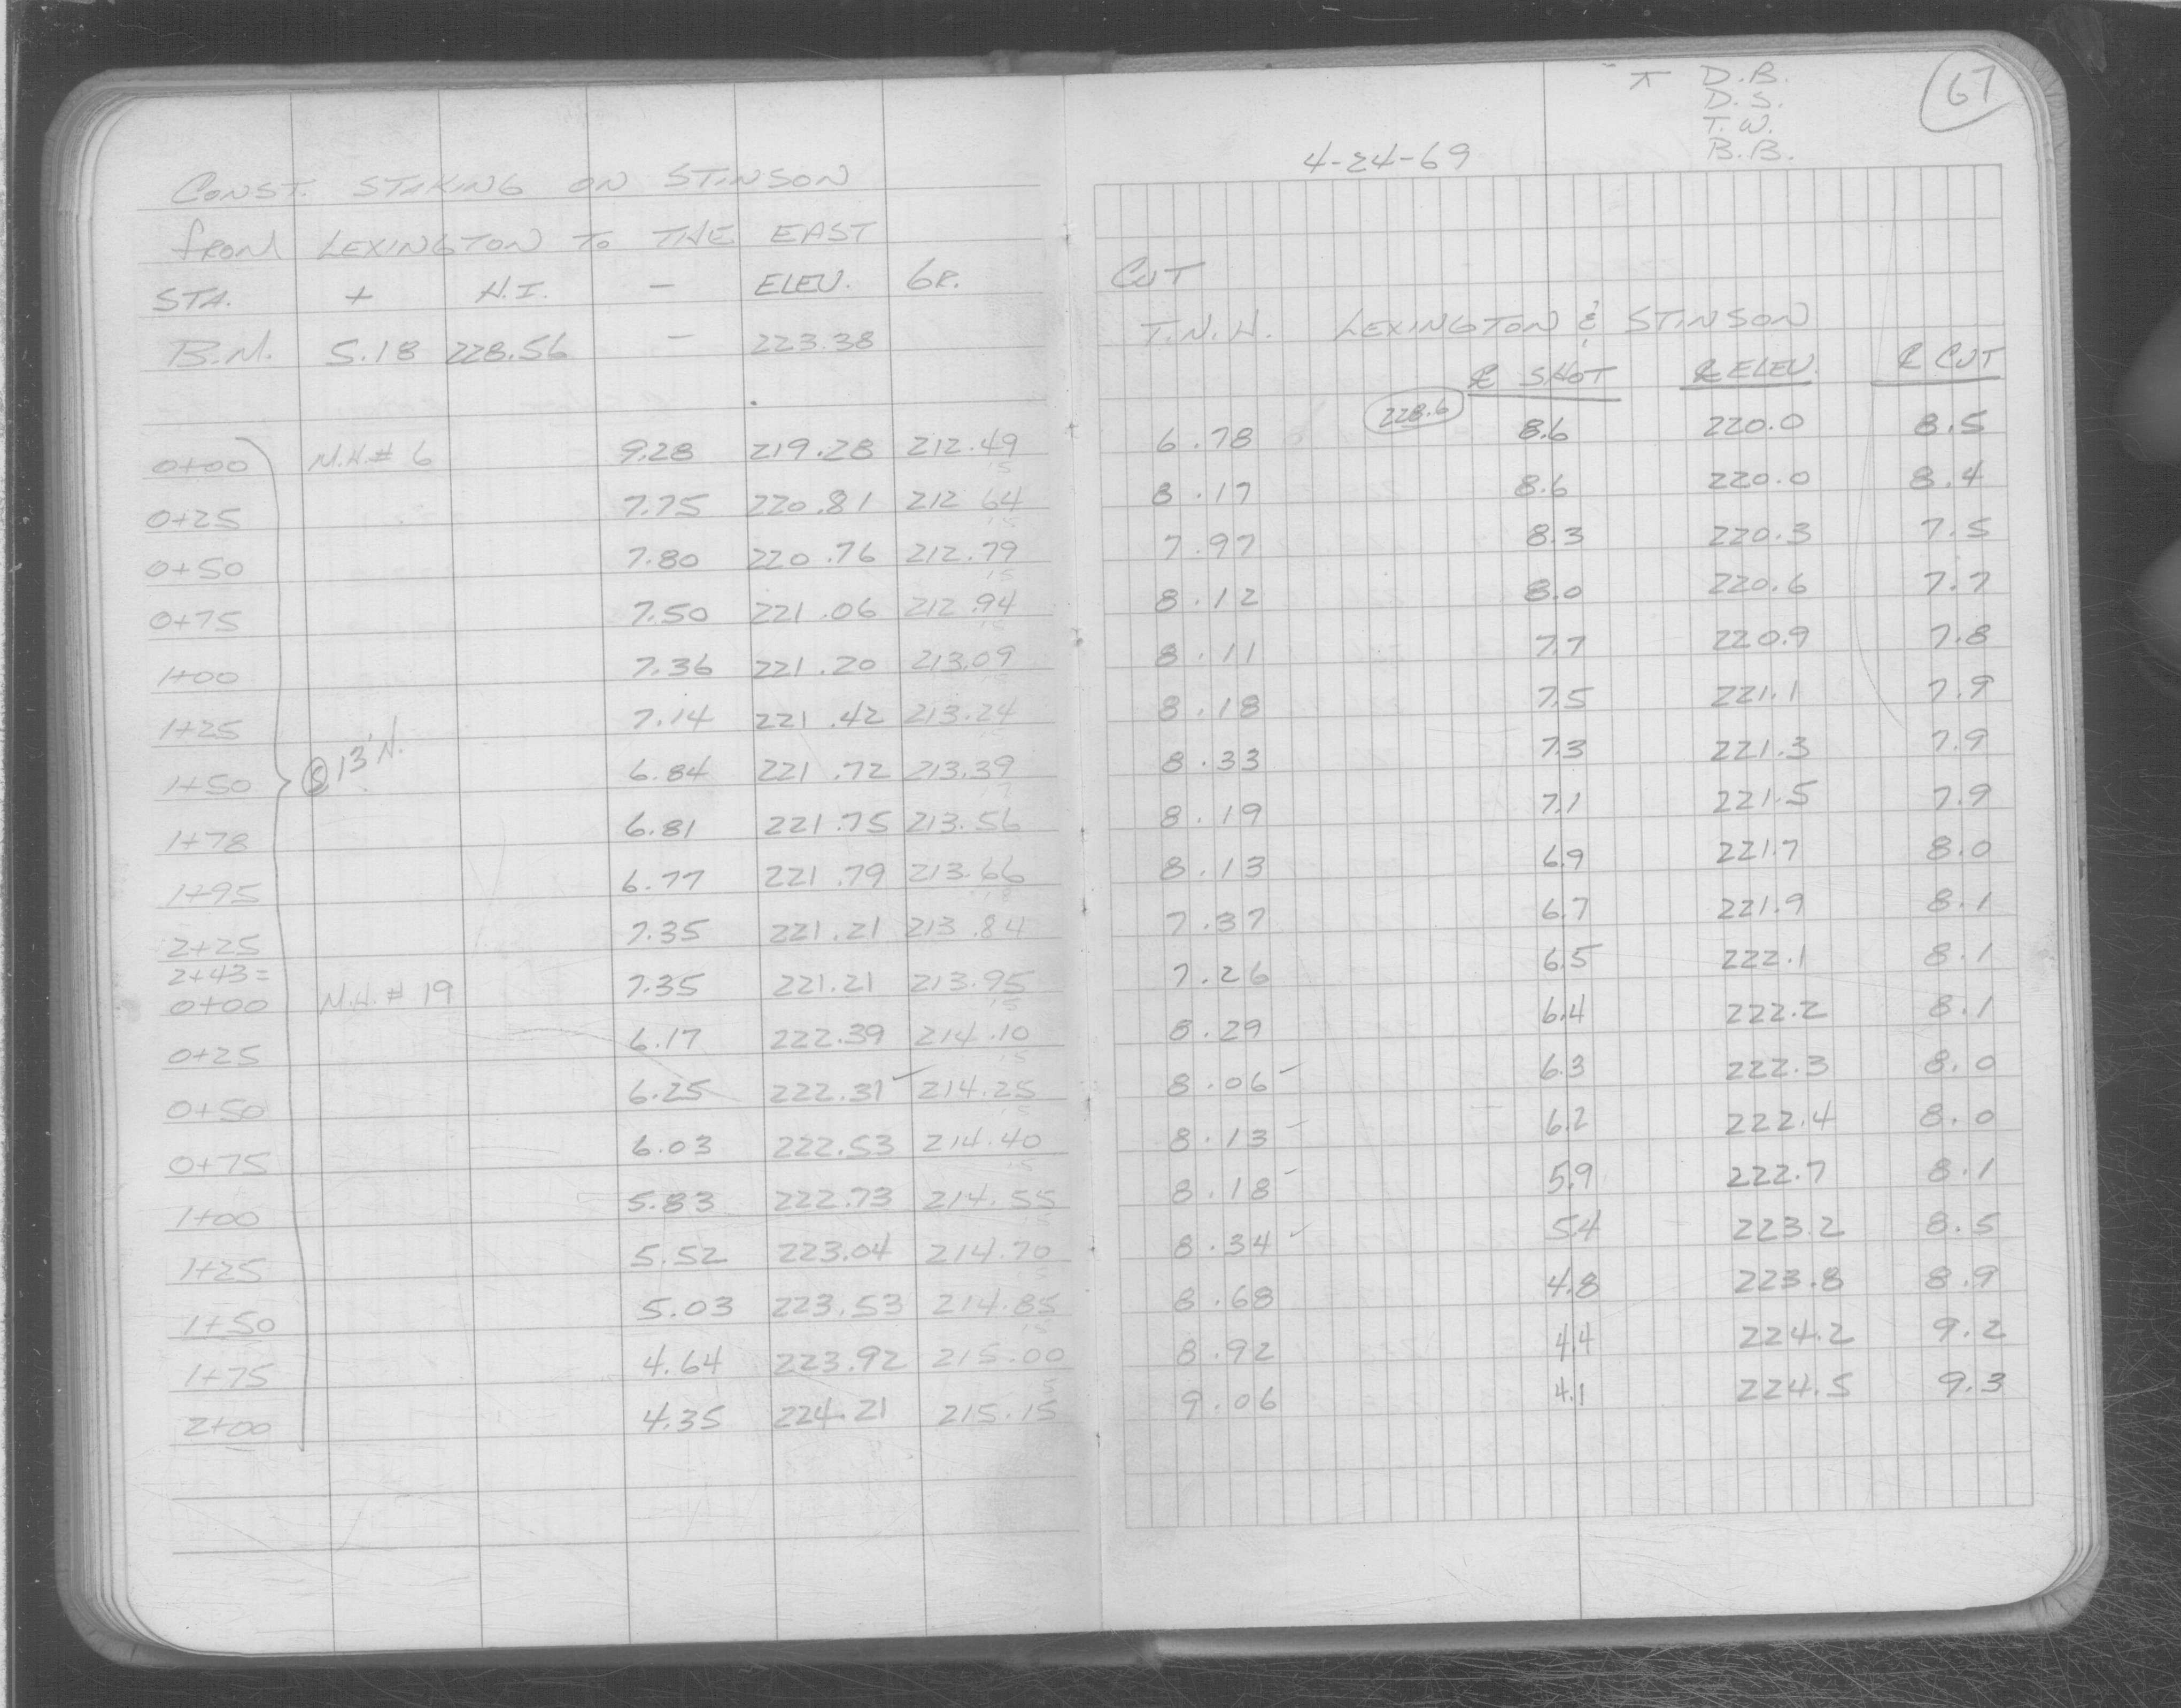 CONST. STAKING ON STINSON
FROM LEXINGTON TO THE EAST
STA. + H.I. - ELEV. GR.
B.M. 5.18 228.56 - 223.38
0+00 M.H.# 6 9.28 219.28 212.49
.15
0+25 7.75 220.81 212 64
.15
0+50 7.80 220.76 212.79
.15
0+75 7.50 221.06 212.94
.15
1+00 7.36 221.20 213.09
.15
1+25 7.14 221.42 213.24
.15
1+50 @ 13' N. 6.84 221.72 213.39
.17
1+78 6.81 221.75 213.56
1+95 6.77 221.79 213.66
.18
2+25 7.35 221.21 213.84
2+43=
0+00 M.H.# 19 7.35 221.21 213.95
.15
0+25 6.17 222.39 214.10
.15
0+50 6.25 222.31 214.25
.15
0+75 6.03 222.53 214.40
.15
1+00 5.83 222.73 214.55
.15
1+25 5.52 223.04 214.70
.15
1+50 5.03 223.53 214.85
.15
1+75 4.64 223.92 215.00
.15
2+00 4.35 224.21 215.15
67
⊼ D.B.
D.S.
T.W.
B.B.
4-24-69
CUT
T.N.H. LEXINGTON & STINSON
℄ SHOT ℄ ELEV. ℄ CUT
6.78 228.6 8.6 220.0 8.5
8.17 8.6 220.0 8.4
7.97 8.3 220.3 7.5
8.12 8.0 220.6 7.7
8.11 7.7 220.9 7.8
8.18 7.5 221.1 7.9
8.33 7.3 221.3 7.9
8.19 7.1 221.5 7.9
8.13 6.9 221.7 8.0
7.37 6.7 221.9 8.1
7.26 6.5 222.1 8.1
8.29 6.4 222.2 8.1
8.06 6.3 222.3 8.0
8.13 6.2 222.4 8.0
8.18 5.9 222.7 8.1
8.34 5.4 223.2 8.5
8.68 4.8 223.8 8.9
8.92 4.4 224.2 9.2
9.06 4.1 224.5 9.3